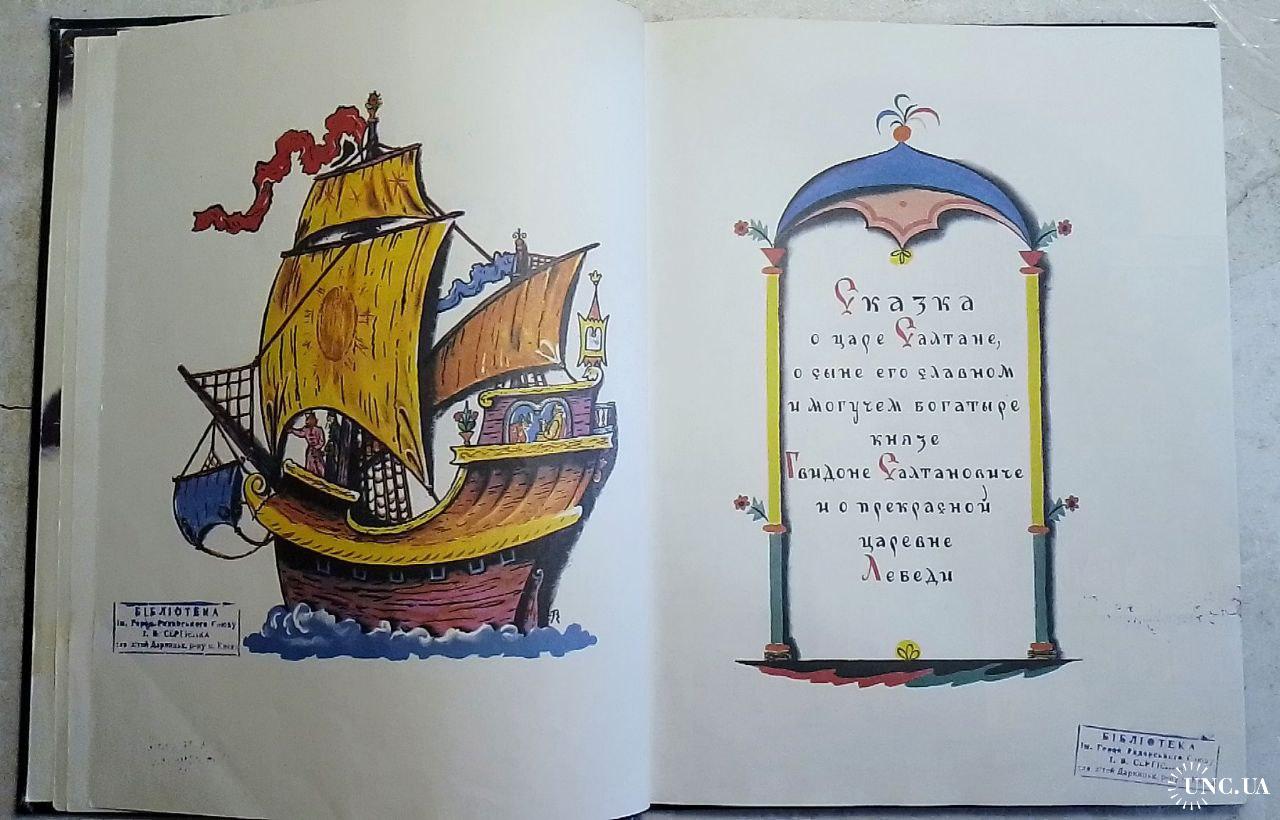 БІБЛІОТЕКА
ім. Героя Радянського Союзу
І. В. СЕРГІЄНКА
для дітей Дарницьк. р-ну м. Києва
Сказка
о царе Салтане,
о сыне его славном
и могучем богатыре
князе
Гвидоне Салтановиче
и о прекрасной
царевне
Лебеди
БІБЛІОТЕКА
ім. Героя Радянського Союзу
І. В. СЕРГІЄНКА
для дітей Дарницьк. р-ну
UNC.UA